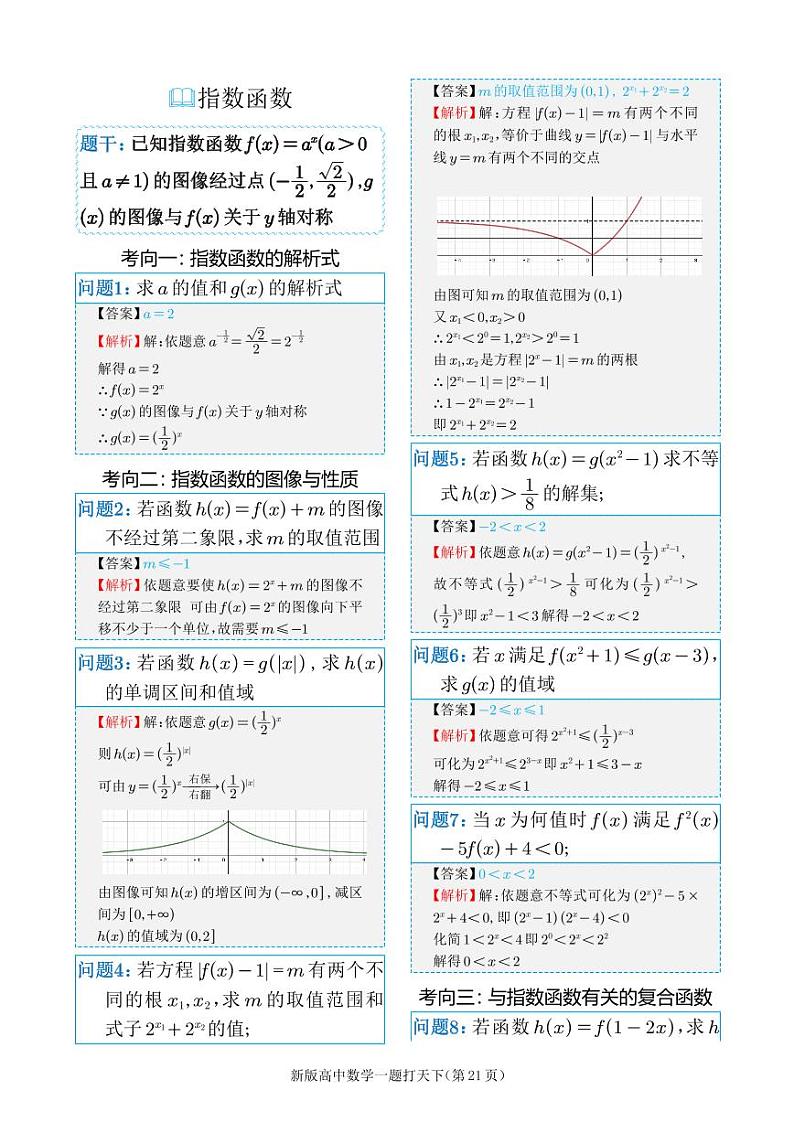 指数函数
题干：已知指数函数f(x)=aˣ(a>0
且a≠1)的图像经过点(-1/2,√2/2),g
(x)的图像与f(x)关于y轴对称
考向一：指数函数的解析式
问题1：求a的值和g(x)的解析式
【答案】a=2
【解析】解：依题意a^{-1/2}=√2/2=2^{-1/2}
解得a=2
∴f(x)=2ˣ
∵g(x)的图像与f(x)关于y轴对称
∴g(x)=(1/2)ˣ
考向二：指数函数的图像与性质
问题2：若函数h(x)=f(x)+m的图像
不经过第二象限，求m的取值范围
【答案】m≤-1
【解析】依题意要使h(x)=2ˣ+m的图像不
经过第二象限 可由f(x)=2ˣ的图像向下平
移不少于一个单位，故需要m≤-1
问题3：若函数h(x)=g(|x|)，求h(x)
的单调区间和值域
【解析】解：依题意g(x)=(1/2)ˣ
则h(x)=(1/2)^{|x|}
可由y=(1/2)ˣ 右保/右翻→(1/2)^{|x|}
由图像可知h(x)的增区间为(-∞,0]，减区
间为[0,+∞)
h(x)的值域为(0,2]
问题4：若方程|f(x)-1|=m有两个不
同的根x₁,x₂，求m的取值范围和
式子2^{x₁}+2^{x₂}的值;
【答案】m的取值范围为(0,1)，2^{x₁}+2^{x₂}=2
【解析】解：方程|f(x)-1|=m有两个不同
的根x₁,x₂,等价于曲线y=|f(x)-1|与水平
线y=m有两个不同的交点
由图可知m的取值范围为(0,1)
又x₁<0,x₂>0
∴2^{x₁}<2⁰=1,2^{x₂}>2⁰=1
由x₁,x₂是方程|2ˣ-1|=m的两根
∴|2^{x₁}-1|=|2^{x₂}-1|
∴1-2^{x₁}=2^{x₂}-1
即2^{x₁}+2^{x₂}=2
问题5：若函数h(x)=g(x²-1)求不等
式h(x)>1/8的解集;
【答案】-2<x<2
【解析】依题意h(x)=g(x²-1)=(1/2)^{x²-1},
故不等式(1/2)^{x²-1}>1/8可化为(1/2)^{x²-1}>
(1/2)³即x²-1<3解得-2<x<2
问题6：若x满足f(x²+1)≤g(x-3)，
求g(x)的值域
【答案】-2≤x≤1
【解析】依题意可得2^{x²+1}≤(1/2)^{x-3}
可化为2^{x²+1}≤2^{3-x}即x²+1≤3-x
解得-2≤x≤1
问题7：当x为何值时f(x)满足f²(x)
-5f(x)+4<0;
【答案】0<x<2
【解析】解：依题意不等式可化为(2ˣ)²-5×
2ˣ+4<0,即(2ˣ-1)(2ˣ-4)<0
化简1<2ˣ<4即2⁰<2ˣ<2²
解得0<x<2
考向三：与指数函数有关的复合函数
问题8：若函数h(x)=f(1-2x)，求h
新版高中数学一题打天下(第21页)